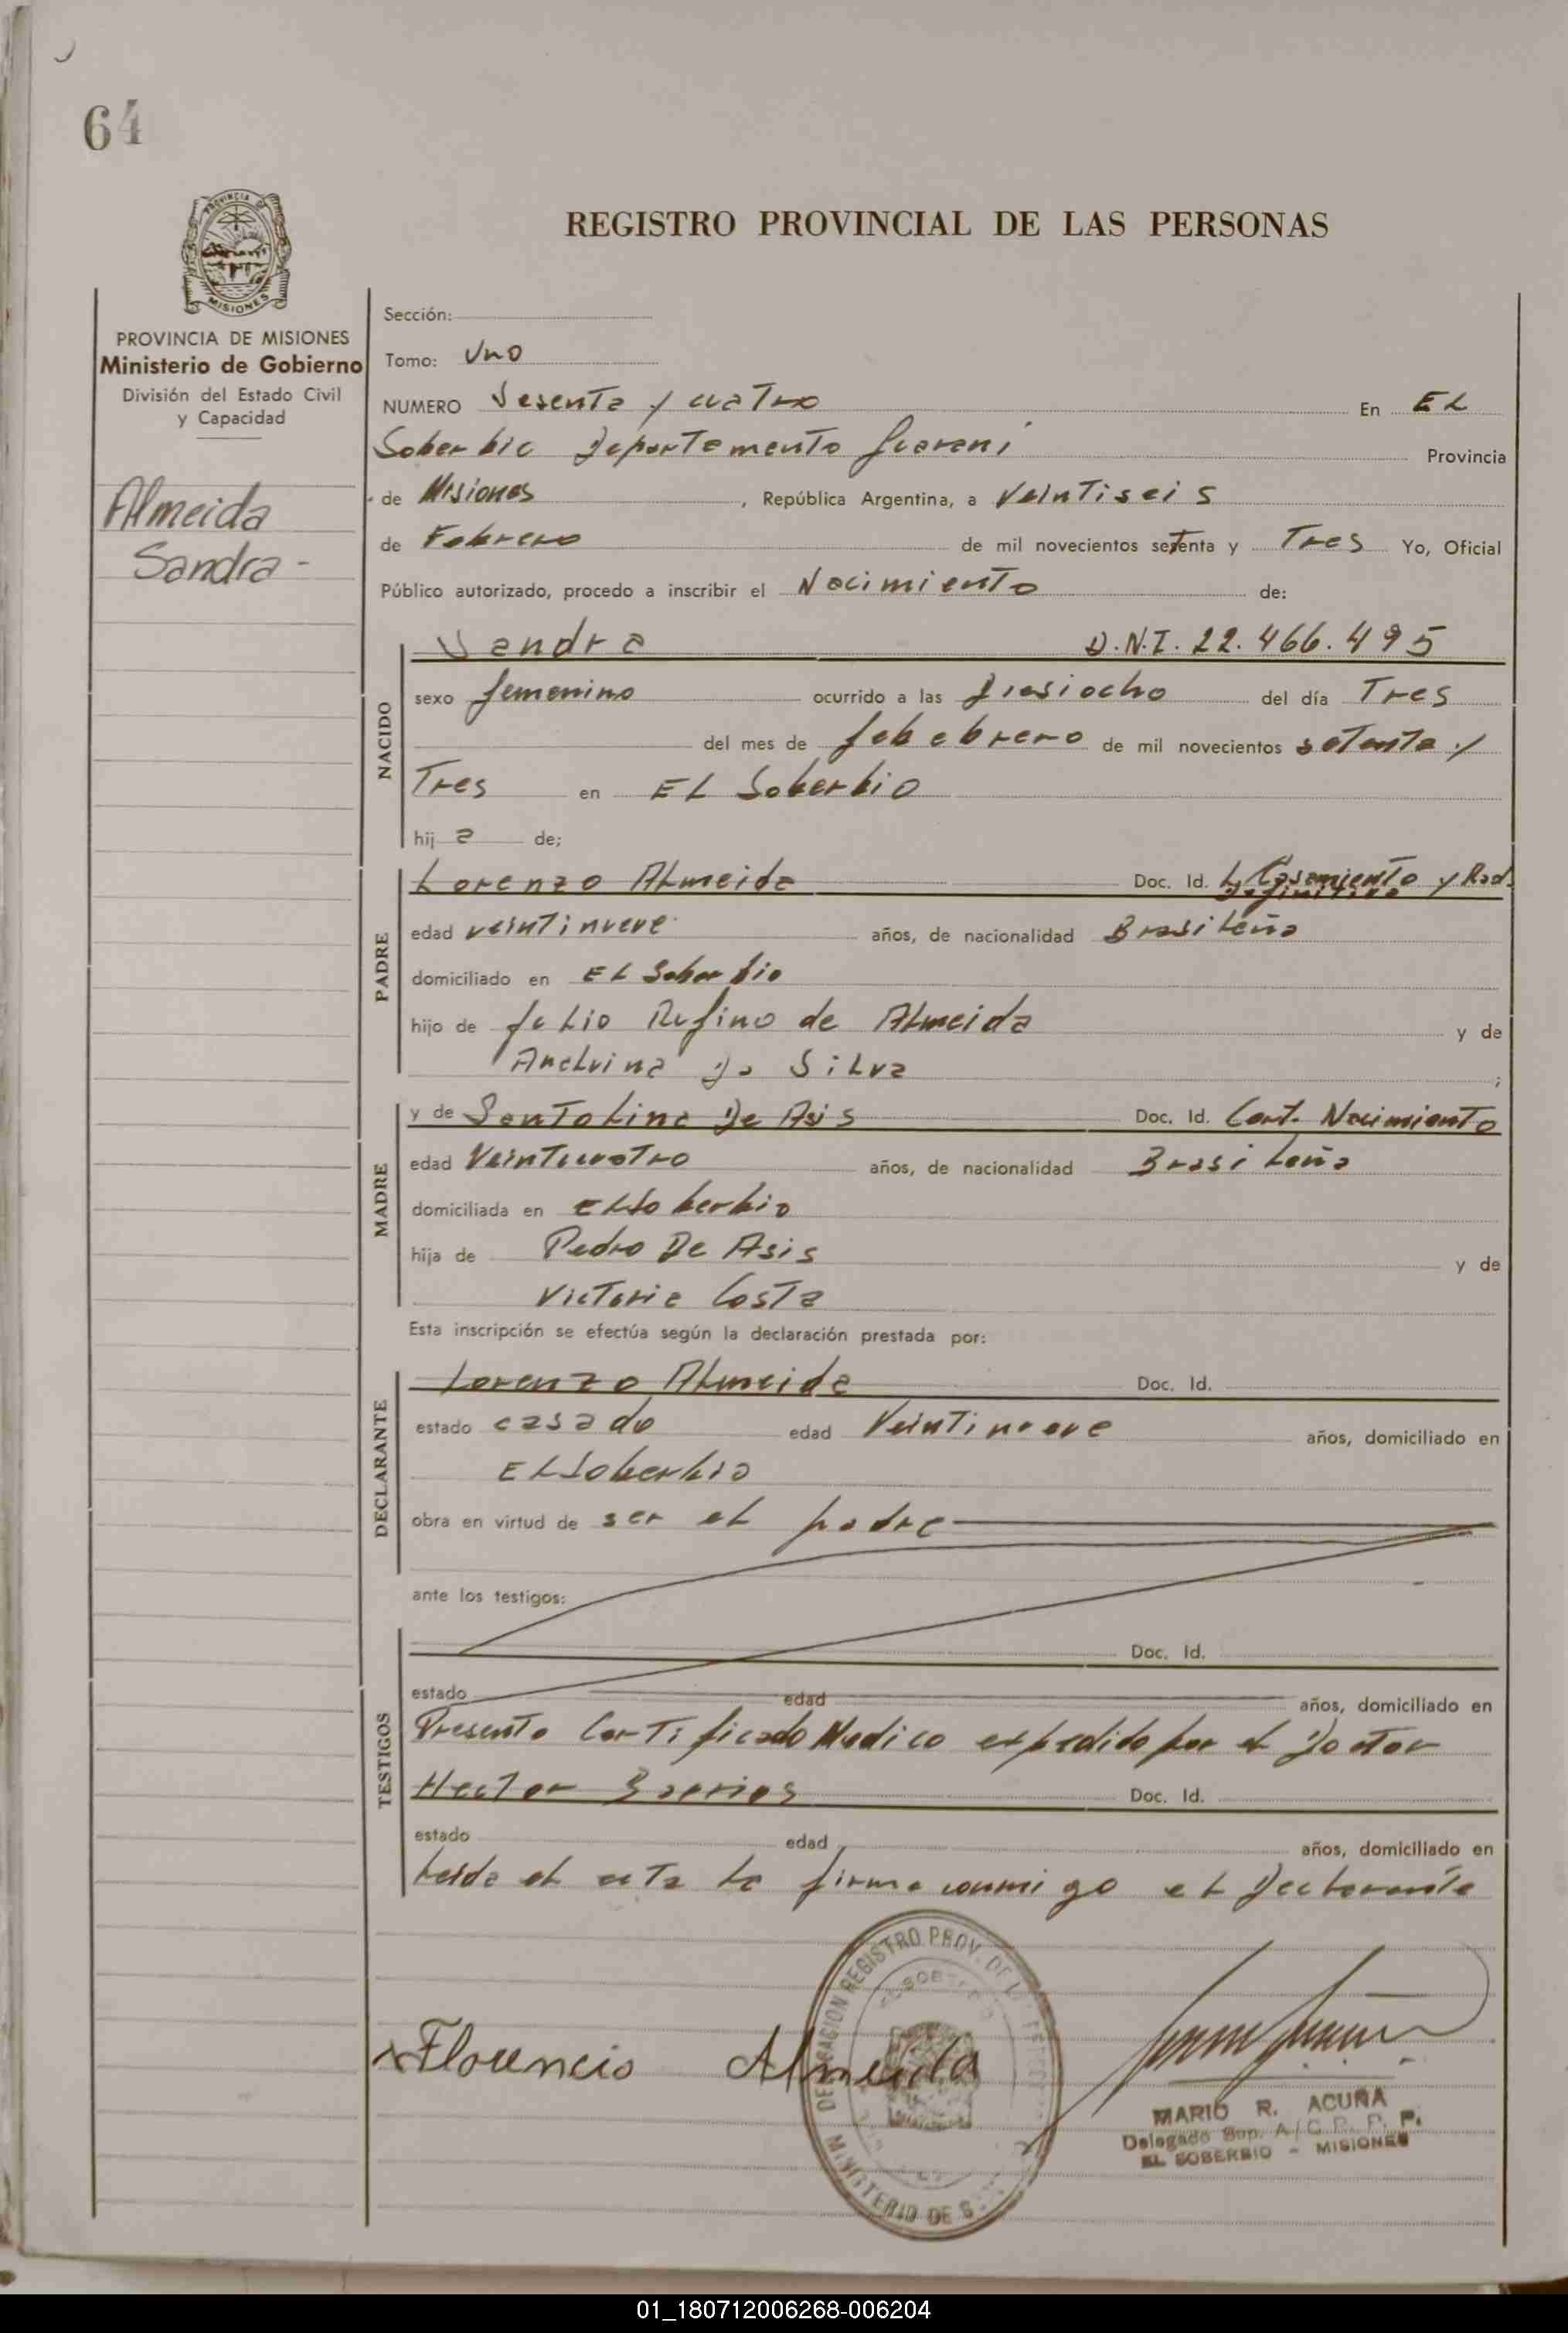 64
PROVINCIA
MISIONES
REGISTRO PROVINCIAL DE LAS PERSONAS
PROVINCIA DE MISIONES
Ministerio de Gobierno
División del Estado Civil
y Capacidad
Almeida
Sandra -
Sección:
Tomo: Uno
NUMERO Sesenta y cuatro En EL
Soberbio Departamento Guarani Provincia
de Misiones, República Argentina, a Veintiseis
de Febrero de mil novecientos setenta y Tres Yo, Oficial
Público autorizado, procedo a inscribir el Nacimiento de:
NACIDO
Sandra D.N.I. 22.466.495
sexo femenino ocurrido a las Diesiocho del día Tres
del mes de febebrero de mil novecientos setenta y
Tres en EL Soberbio
hija de;
PADRE
Lorenzo Almeida Doc. Id. L, Casamiento y Rad.
Definitiva
edad veintinueve años, de nacionalidad Brasileña
domiciliado en EL Soberbio
hijo de Julio Rufino de Almeida y de
Da Silva;
MADRE
y de De Asis Doc. Id. Cert. Nacimiento
edad Veinticuatro años, de nacionalidad Brasileña
domiciliada en EL Soberbio
hija de Pedro De Asis y de
Victoria Costa
Esta inscripción se efectúa según la declaración prestada por:
DECLARANTE
Lorenzo Almeida Doc. Id.
estado casado edad Veintinueve años, domiciliado en
EL Soberbio
obra en virtud de ser el padre
ante los testigos:
TESTIGOS
Doc. Id.
estado edad años, domiciliado en
Presento Certificado Medico expedido por el Doctor
Hector Barrios Doc. Id.
estado edad años, domiciliado en
Leida el acta la firma conmigo el Declarante
DELEGACION REGISTRO PROV. DE
MINISTERIO DE
xFlorencio Almeida
MARIO R. ACUÑA
Delegado Sup. A/C R. P. P.
EL SOBERBIO - MISIONES
01_180712006268-006204